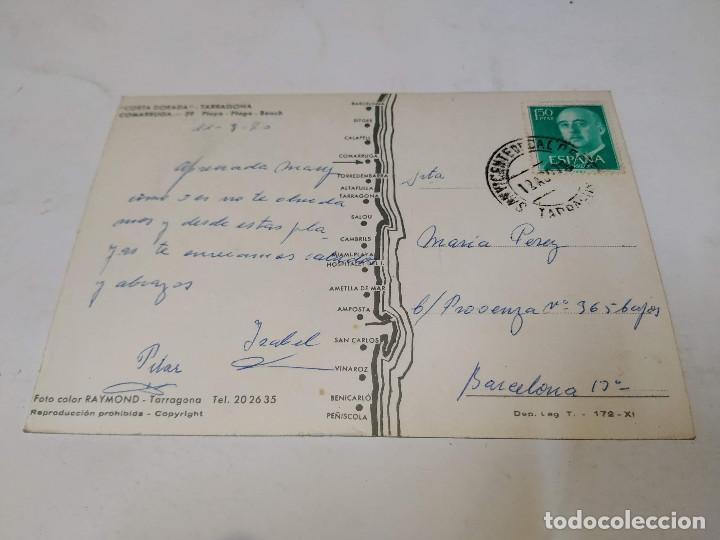 "COSTA DORADA" - TARRAGONA
COMARRUGA. - 29 Playa - Plage - Beach
Apreciada Mary
como ves no te olvida
mos y desde estas pla
yas te enviamos saludos
y abrazos
Isabel
Pilar
Foto color RAYMOND - Tarragona Tel. 20 26 35
Reproducción prohibida - Copyright
BARCELONA
SITGES
CALAFELL
COMARRUGA
TORREDEMBARRA
ALTAFULLA
TARRAGONA
SALOU
CAMBRILS
MIAMI PLAYA
HOSPITALET DEL I.
AMETLLA DE MAR
AMPOSTA
SAN CARLOS
VINAROZ
BENICARLÓ
PEÑISCOLA
1'50
PTAS
ESPAÑA
S. VICENTE DE CALDERS
TARRAGONA
Srta
María Perez
c/ Provenza nº 365 bajos
Barcelona 13º
Dep. Leg T. - 172 - XI
todocoleccion.net